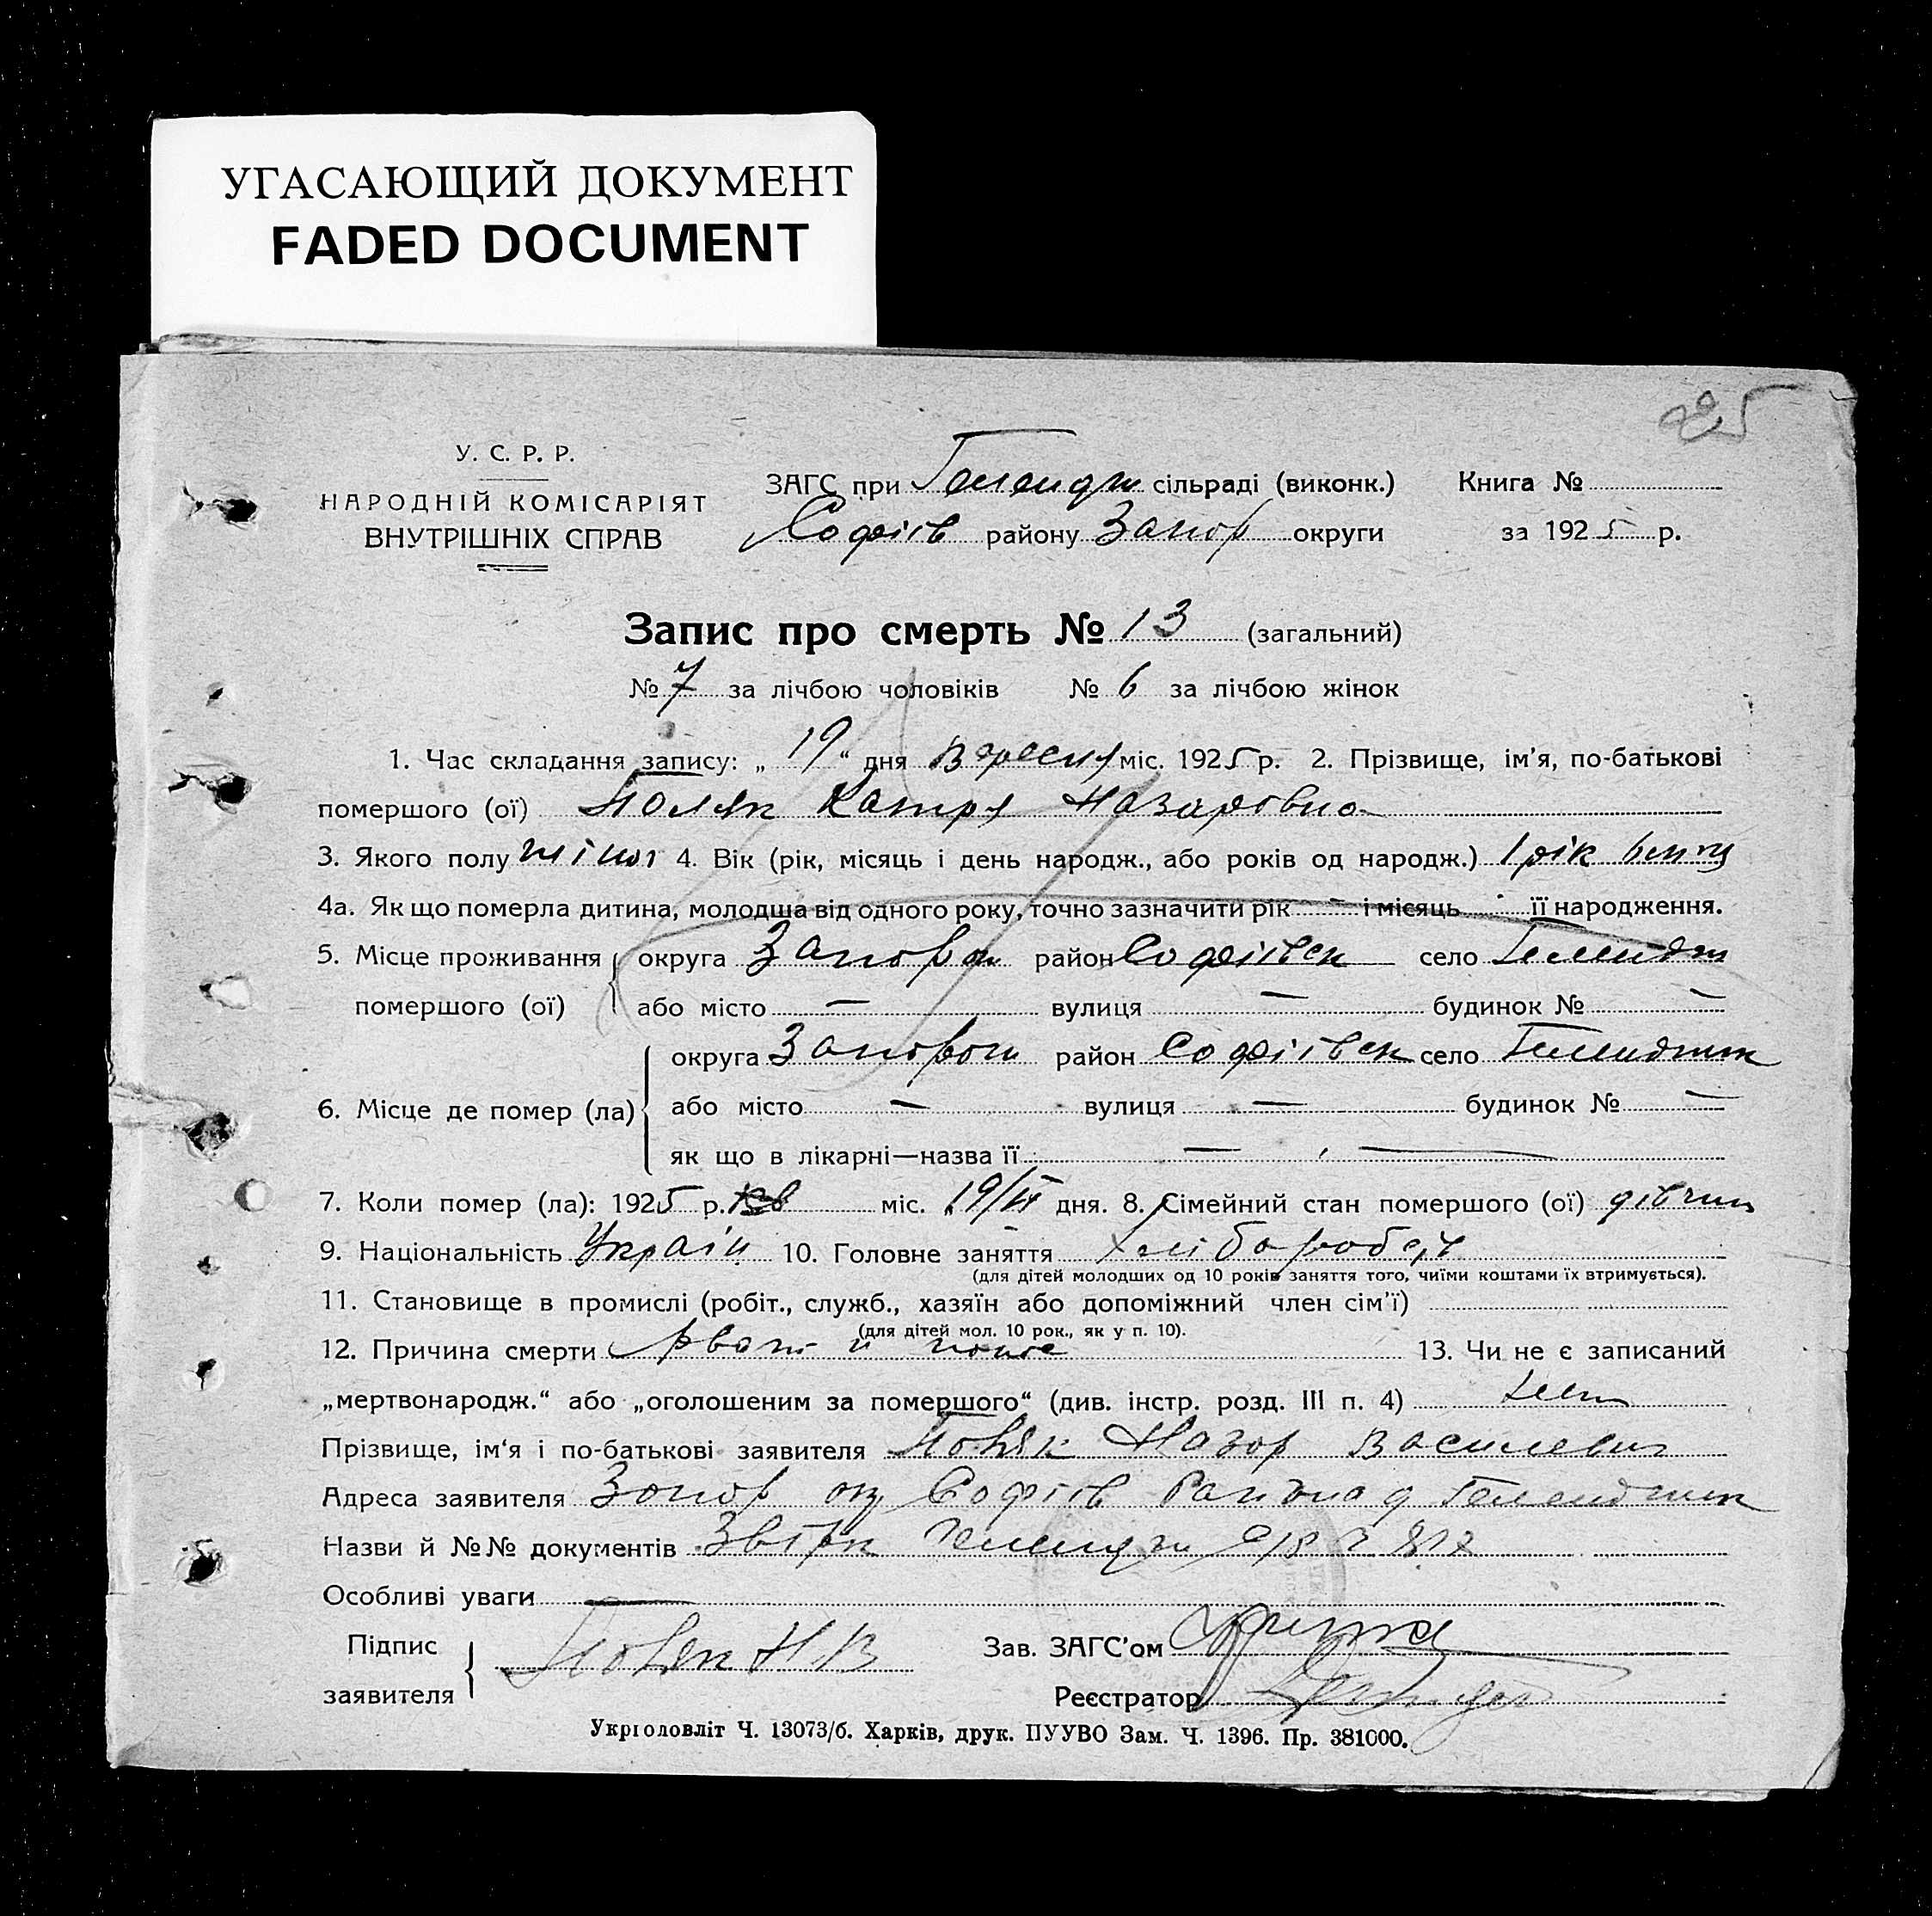 УГАСАЮЩИЙ ДОКУМЕНТ
FADED DOCUMENT
225
У. С. Р. Р.
НАРОДНІЙ КОМІСАРІЯТ
ВНУТРІШНІХ СПРАВ
ЗАГС при сільраді (виконк.)
Софіів району Запор округи
Книга №
за 1925 р.
Запис про смерть № 13 (загальний)
№ 7 за лічбою чоловіків № 6 за лічбою жінок
1. Час складання запису: „ 19 “ дня Вересня міс. 1925 р. 2. Прізвище, ім’я, по-батькові
помершого (ої) Поляк Катря Назаровна
3. Якого полу жіноч 4. Вік (рік, місяць і день народж., або років од народж.) 1 рік 6
4а. Як що померла дитина, молодша від одного року, точно зазначити рік - і місяць - її народження.
5. Місце проживання округа район Софіївск село
помершого (ої) або місто — вулиця — будинок № —
округа район Софіївск село
6. Місце де помер (ла) або місто — вулиця — будинок № —
як що в лікарні—назва її — —
7. Коли помер (ла): 1925 р. міс. 19/IX дня. 8. Сімейний стан помершого (ої)
9. Національність Украін 10. Головне заняття хлібороб
(для дітей молодших од 10 років заняття того, чиїми коштами їх втримується).
11. Становище в промислі (робіт., служб., хазяїн або допоміжний член сім’ї)
(для дітей мол. 10 рок., як у п. 10).
12. Причина смерти 13. Чи не є записаний
„мертвонародж.“ або „оголошеним за помершого“ (див. інстр. розд. III п. 4)
Прізвище, ім‘я і по-батькові заявителя Поляк Назар Василевич
Адреса заявителя Запор окр Софіїв Района
Назви й №№ документів
Особливі уваги —
Підпис
заявителя Поляк Н В
Зав. ЗАГС’ом
Реєстратор
Укрголовліт Ч. 13073/б. Харків, друк. ПУУВО Зам. Ч. 1396. Пр. 381000.